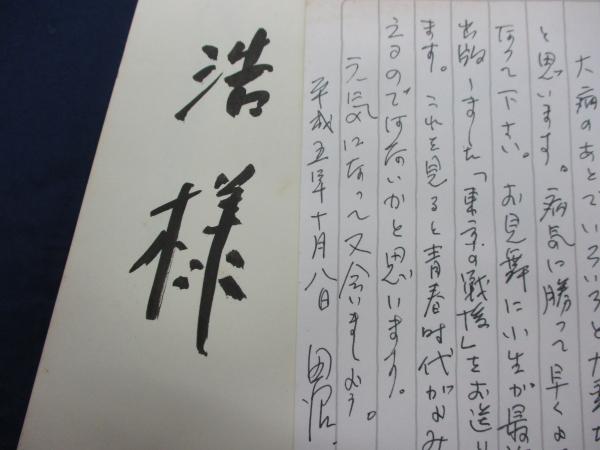 大病のあとでいろいろと大変だ
と思います。病気に勝って早くよ
なって下さい。お見舞に小生が最近
出版しました「東京の戦後」をお送り
ます。これを見ると青春時代がよみ
えるのではないかと思います。
元気になって又会いましょう。
平成五年十月八日 田沼
浩様